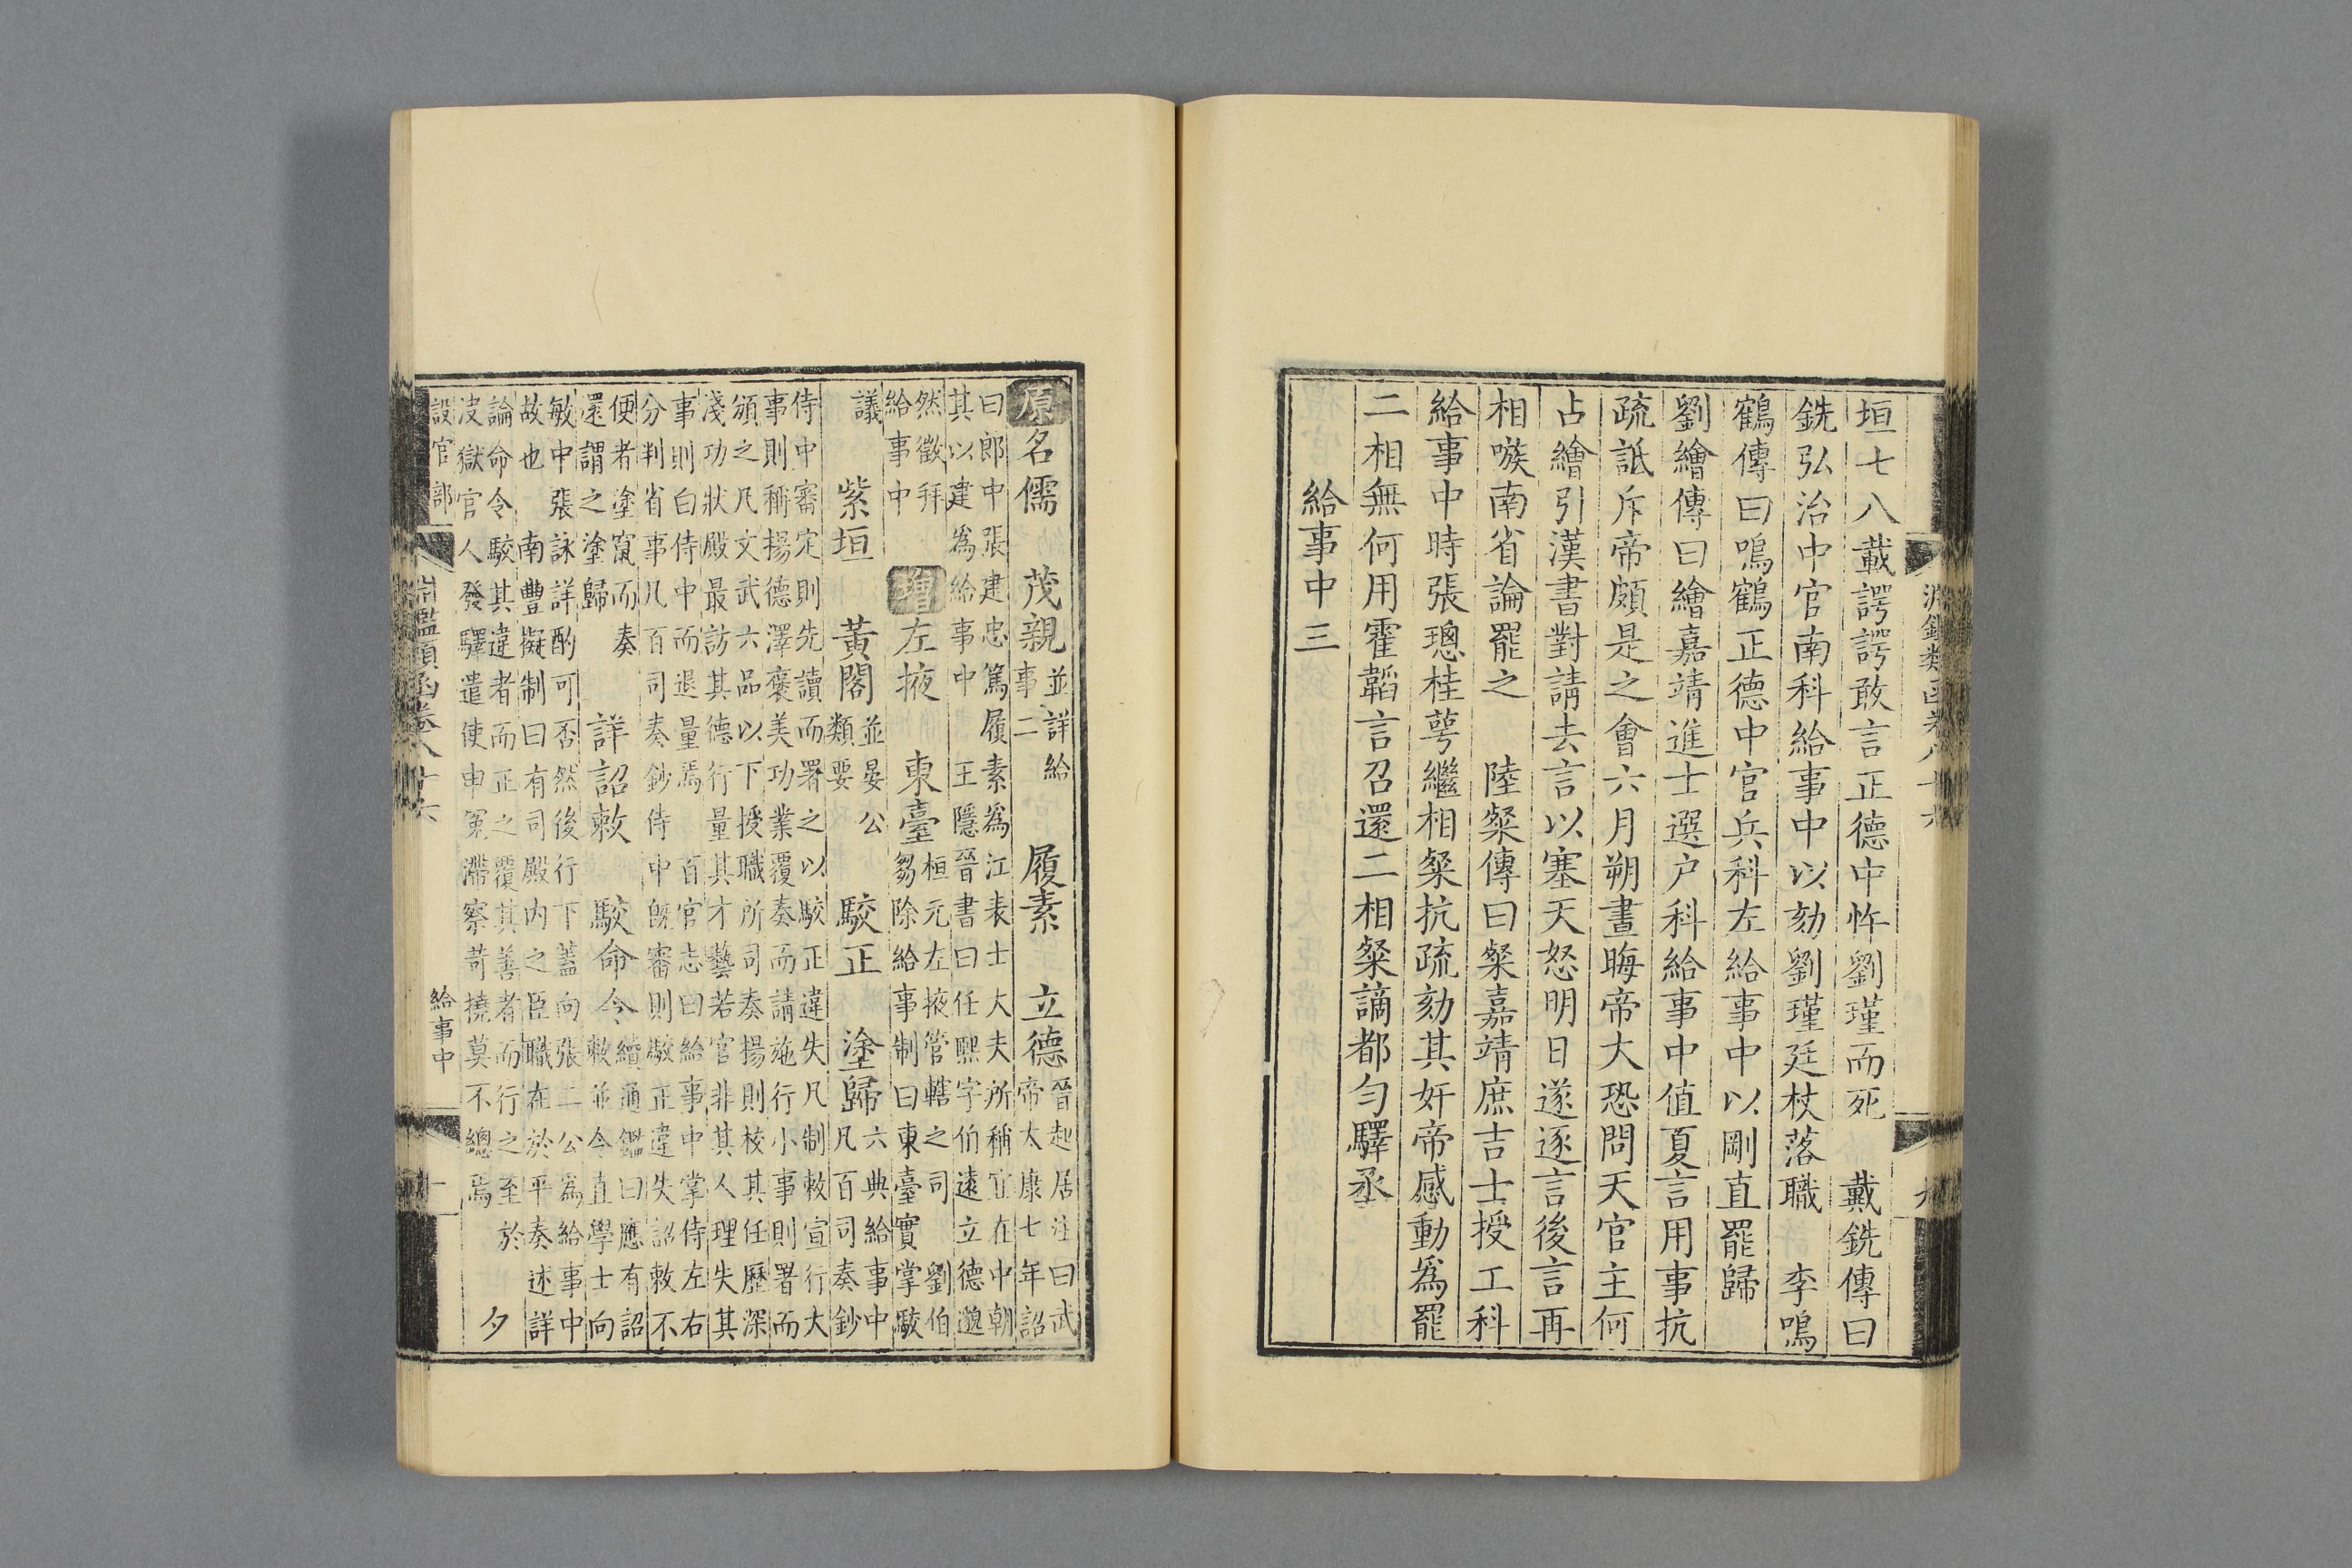 垣七八載諤諤敢言正德中忤劉瑾而死　戴銑傳曰
銑弘治中官南科給事中以劾劉瑾廷杖落職　李鳴
鶴傳曰鳴鶴正德中官兵科左給事中以剛直罷歸
劉繪傳曰繪嘉靖進士選户科給事中值夏言用事抗
疏詆斥帝頗是之會六月朔晝晦帝大恐問天官主何
占繪引漢書對請去言以塞天怒明日遂逐言後言再
相嗾南省論罷之　陸粲傳曰粲嘉靖庶吉士授工科
給事中時張璁桂萼繼相粲抗疏劾其奸帝感動爲罷
二相無何用霍韜言召還二相粲謫都勻驛丞
給事中三
原名儒　茂親並詳給事二　履素　立德晉起居注曰武帝太康七年詔
曰郎中張建忠篤履素爲江表士大夫所稱宜在中朝其以建爲給事中　王隱晉書曰任熙字伯遠立德邈
然徵拜給事中　增左掖　東臺桓元左掖管轄之司　劉伯芻除給事制曰東臺實掌駁
議　紫垣　黃閣並晏公類要　駮正　塗歸六典給事中凡百司奏鈔
侍中審定則先讀而署之以駮正違失凡制敕宣行大事則稱揚德澤褒美功業覆奏而請施行小事則署而
頒之凡文武六品以下授職所司奏揚則校其任歷深淺功狀殿最訪其德行量其才藝若官非其人理失其
事則白侍中而退量焉　百官志曰給事中掌侍左右分判省事凡百司奏鈔侍中旣審則駮正違失詔敕不
便者塗竄而奏還謂之塗歸　詳詔敕　駮命令續通鑑曰應有詔敕並令直學士向
敏中張詠詳酌可否然後行下蓋向張二公爲給事中故也　南豐擬制曰有司殿内之臣職在於平奏述詳
論命令駮其違者而正之覆其善者而行之至於
没獄官人發驛遣使申冤滯察苛撓莫不總焉　夕
設官部
淵鑑類函卷八十六
給事中